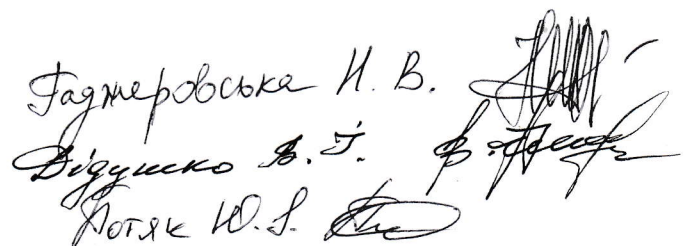 Гаджеровська Н. В.
Дідушко В. Г.
Потяк Ю. Я.